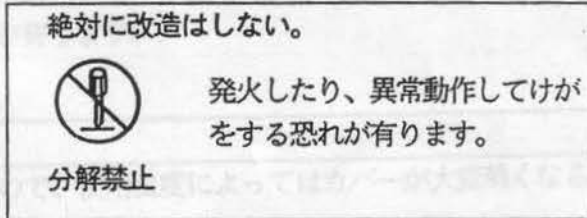 絶対に改造はしない。
発火したり、異常動作してけが
をする恐れが有ります。
分解禁止